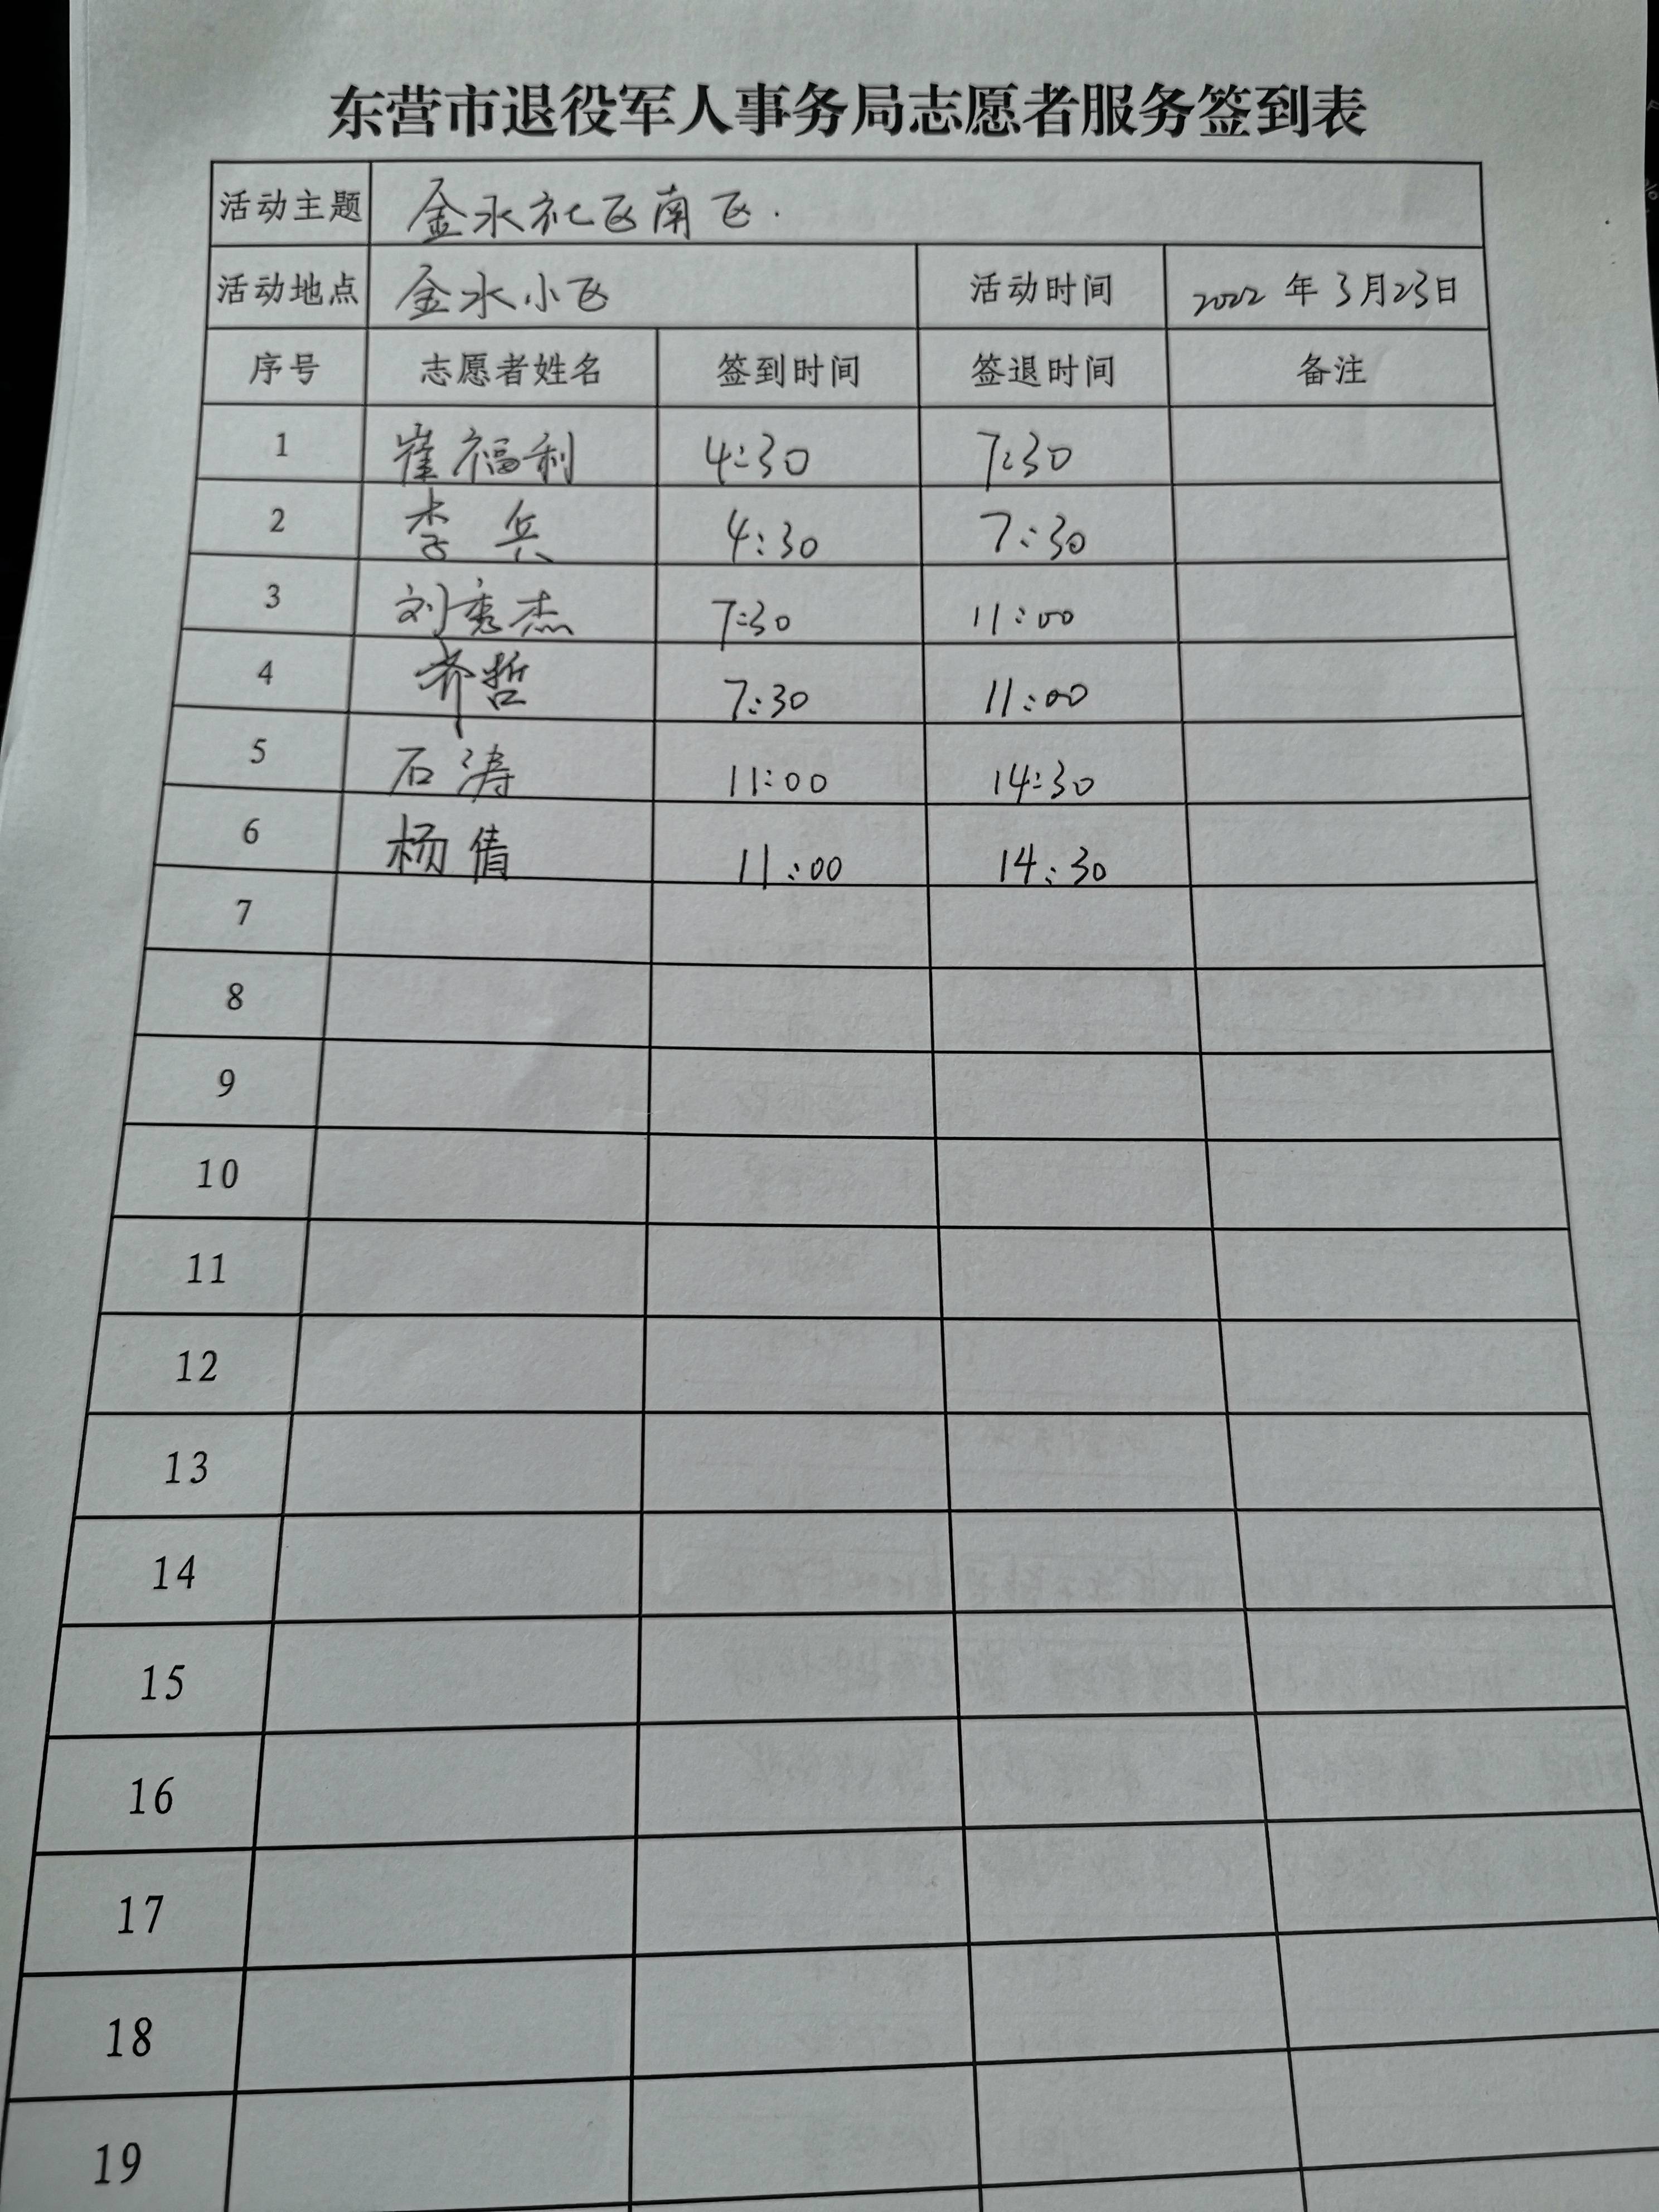 东营市退役军人事务局志愿者服务签到表
活动主题 金水社区南区.
活动地点 金水小区 活动时间 2022 年 3月23日
序号 志愿者姓名 签到时间 签退时间 备注
1 崔福利 4:30 7:30
2 李兵 4:30 7:30
3 刘秀杰 7:30 11:00
4 齐哲 7:30 11:00
5 石涛 11:00 14:30
6 杨倩 11:00 14:30
7
8
9
10
11
12
13
14
15
16
17
18
19